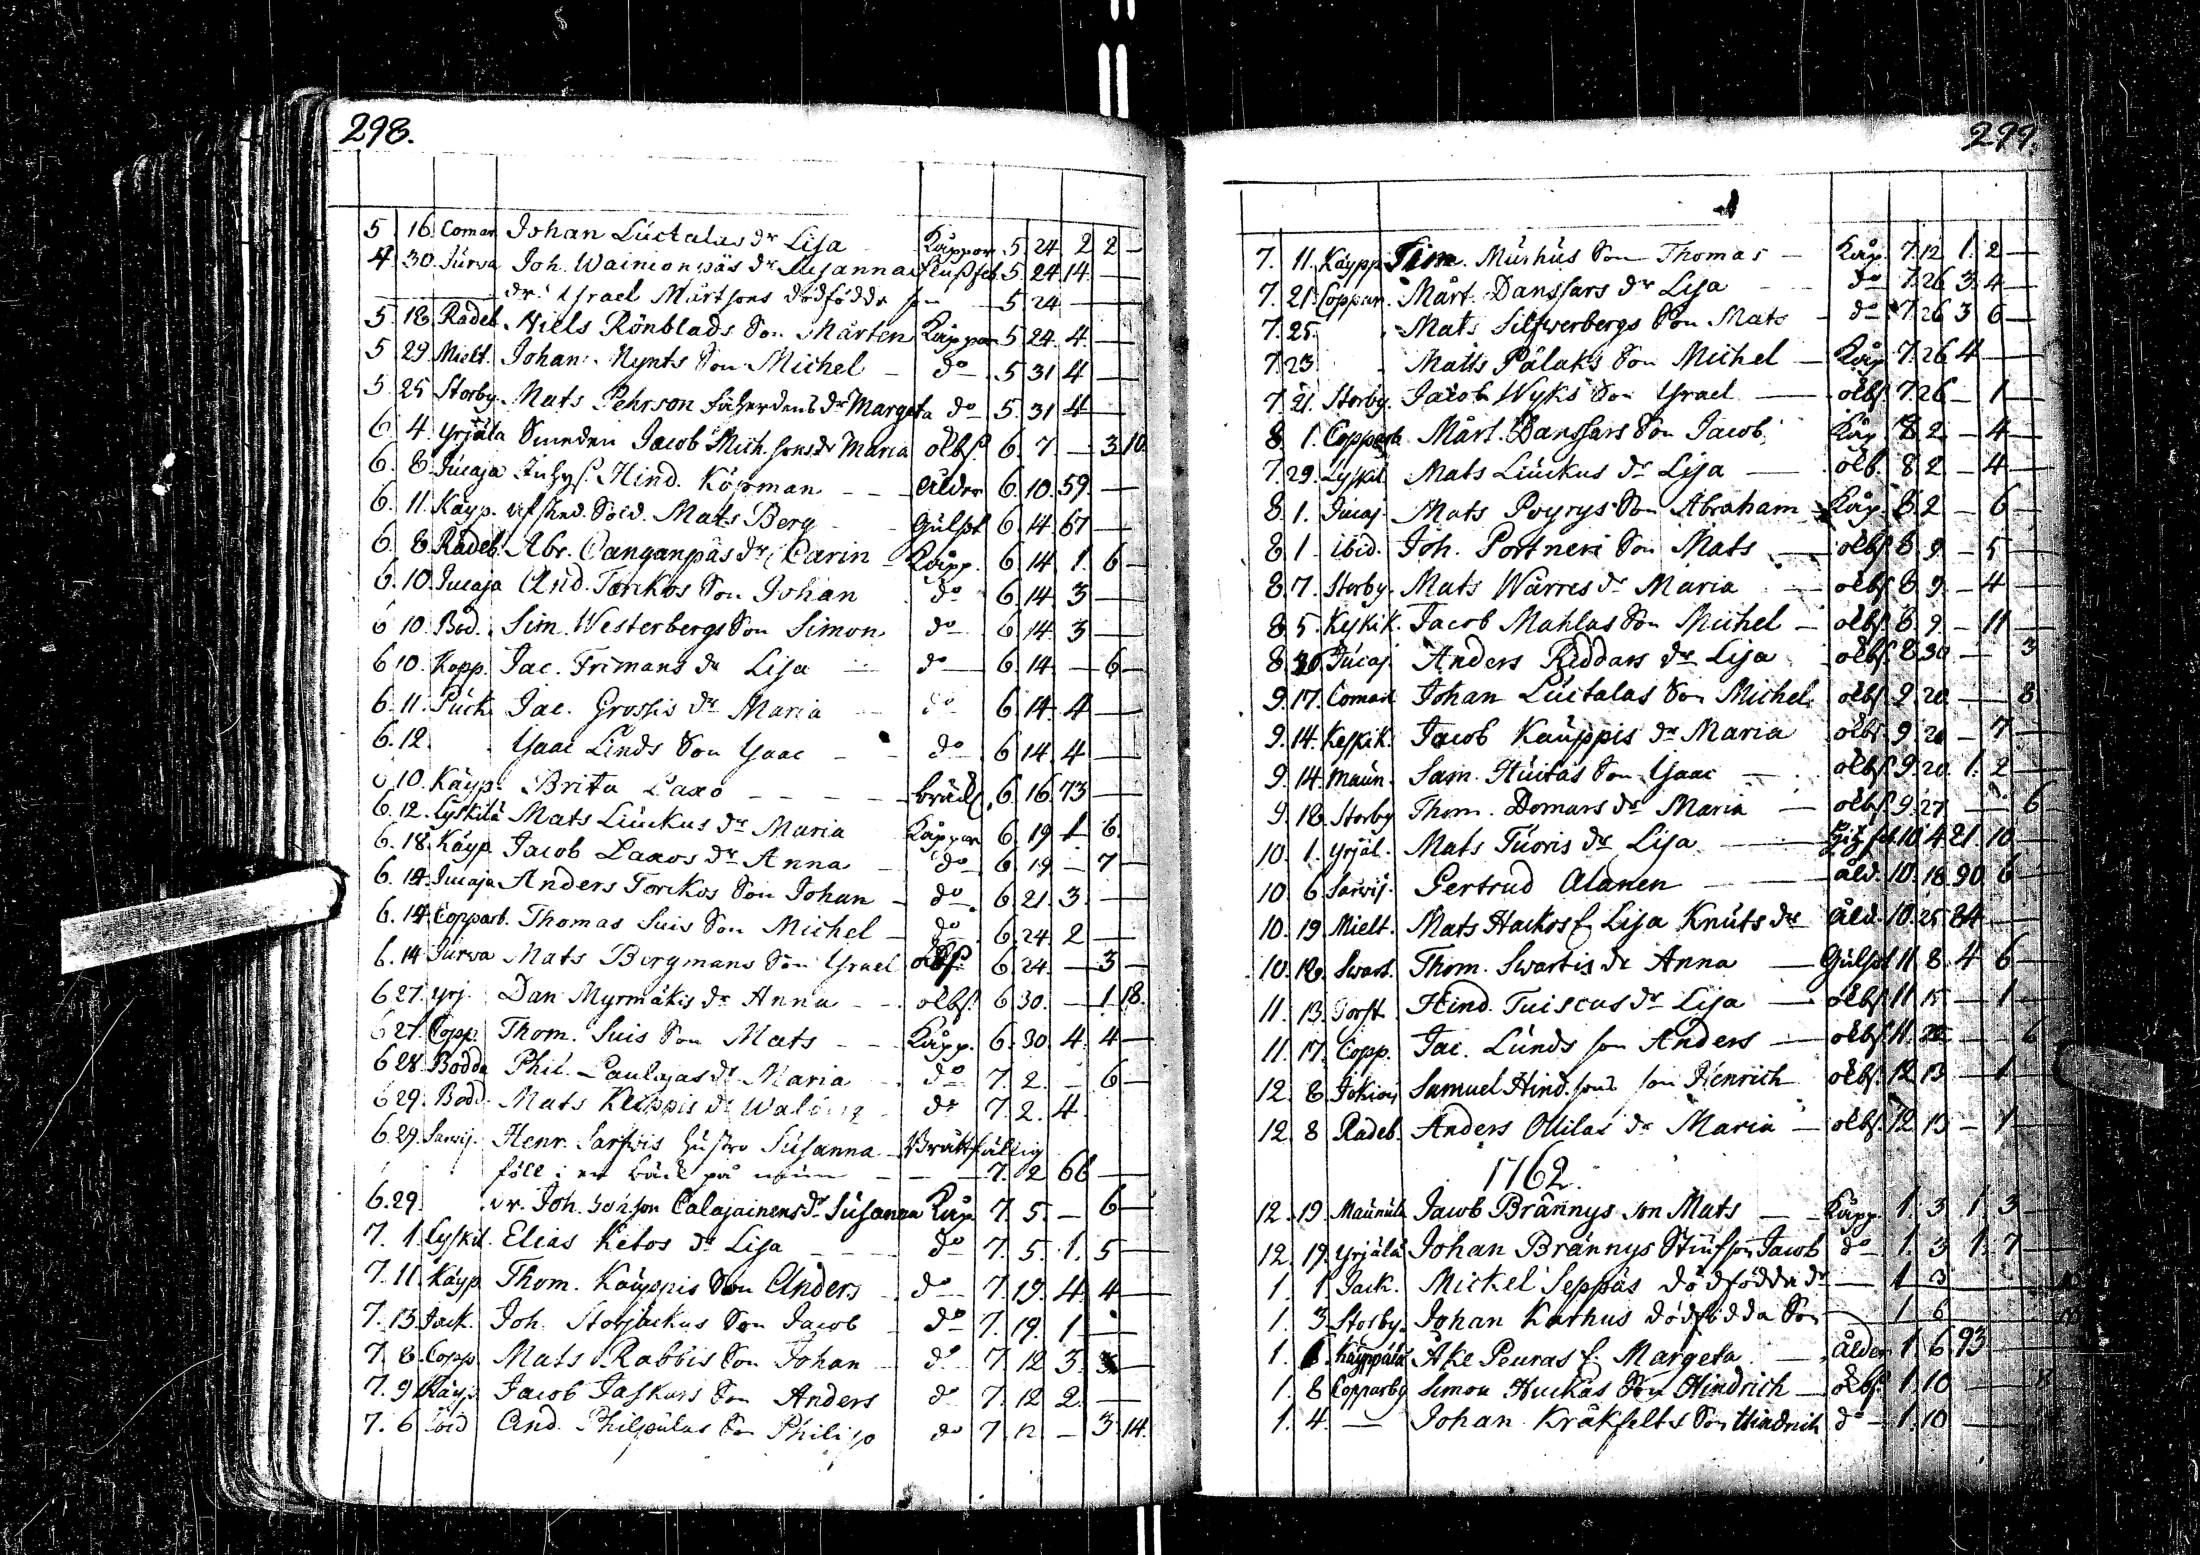 298.
5 16 Coman Johan Luctalas dr Lisa Kåppor 5 24 2 2 —
4 30 Jurva Joh. Wainionpäs dr Susanna 5 24 14 —
dr. Israel Mårtsons dödfödde son 5 24 —
5 18 Radeb. Niells Rönblads Son Mårten Kåppor 5 24 4 —
5 29 Mielt. Johan Nynts Son Michel do 5 31 4 —
5 25 Storby Mats Pehrson dr Margeta do 5 31 4 —
6 4 Yrjäla Smeden Jacob Mich.sons dr Maria olbs. 6 7 — 3 10
6 8 Jucaja Hind. Köpman — ålder 6 10 59 —
6 11 Käyp. afsked. Sold. Mats Berg Gulsot 6 14 67 —
6 8 Radeb. Abr. Canganpäs dr Carin Kåpp. 6 14 1 6 —
6 10 Jucaja And. Torckos Son Johan do 6 14 3 —
6 10 Bod. Sim. Westerbergs Son Simon do 6 14 3 —
6 10 Kopp. Jac. Frimans dr Lisa do 6 14 — 6 —
6 11 Puck. Jac. Grossis dr Maria do 6 14 4 —
6 12 Isaac Linds Son Isaac do 6 14 4 —
6 10 Käyp. Brita Laxo — bråd. 6 16 73 —
6 12 Lyskilä Mats Liuckus dr Maria Kåppor 6 19 1 6
6 18 Käyp. Jacob Laxos dr Anna do 6 19 — 7 —
6 14 Jucaja Anders Torckos Son Johan do 6 21 3 —
6 14 Copparb. Thomas Suis Son Michel do 6 24 2 —
6 14 Jurva Mats Bergmans Son Israel olbs. 6 24 — 3 —
6 27 Yrj. Dan Myrmäkis dr Anna olbs. 6 30 — 1 18
6 27 Copp. Thom. Suis Son Mats Kåpp. 6 30 4 4 —
6 28 Bodda Phil. Paulajas dr Maria do 7 2 — 6 —
6 29 Bodd. Mats Keippis dr Walborg do 7 2 4
6 29 Sarvij. Henr. Sarfvis hustro Susanna Bråttfällig
föll i en bäck på 7 2 66 —
6 29 dr. Joh. Johson Calajainens dr Susanna Kåp. 7 5 — 6 —
7 1 Lyskil. Elias Ketos dr Lisa do 7 5 1 5 —
7 11 Käyp. Thom. Käyppis Son Anders do 7 19 4 4 —
7 13 Jack. Joh. Storjäckus Son Jacob do 7 19 1 —
7 8 Copp. Mats Rabbis Son Johan do 7 12 3 —
7 9 Käyp. Jacob Jaskars Son Anders do 7 12 2 —
7 6 ibid And. Philpulas Son Philip do 7 12 — 3 14
299.
7 11 Käypp. Sim. Murhus Son Thomas — Kåp. 7 12 1 2 —
7 21 Coppar. Mårt. Danssars dr Lisa do 7 26 3 4 —
7 25 Mats Silfwerbergs Son Mats do 7 26 3 6 —
7 23 Matts Pålaks Son Michel — Kåp. 7 26 4 —
7 21 Storby. Jacob Wyks Son Israel — olbs. 7 26 — 1 —
8 1 Copparb. Mårt. Danssars Son Jacob Kåp. 8 2 — 4 —
7 29 Lyskil Mats Liuckus dr Lisa — olb. 8 2 — 4 —
8 1 Jucaj. Mats Poyrys Son Abraham Kåp. 8 2 — 6 —
8 1 ibid. Joh. Portneri Son Mats — olbs. 8 9 — 5 —
8 7 Storby. Mats Warres dr Maria — olbs. 8 9 — 4 —
8 5 Keskik. Jacob Mahlas Son Michel — olbs. 8 9 — 11 —
8 Jucaj. Anders Riddars dr Lisa olbs. 8 30 — 3
9 17 Coman Johan Luctalas Son Michel olbs. 9 20 — 8
9 14 Keskik. Jacob Kauppis dr Maria olbs. 9 20 — 7 —
9 14 Maun. Sam. Huitas Son Isaac — olbs. 9 20 1 2 —
9 18 Storby Thom. Domars dr Maria — olbs. 9 27 — 6
10 1 Yrjäl. Mats Tuoris dr Lisa — 10 4 21 10 —
10 6 Sarvij. Gertrud Alanen — åld. 10 18 90 6 —
10 19 Mielt. Mats Hackos h. Lisa Knuts dr Åld. 10 25 84 —
10 18 Swart. Thom. Swartis dr Anna — Gulsot 11 8 4 6 —
11 13 Torst. Hind. Tuiscus dr Lisa — olbs. 11 15 — 1 —
11 17 Copp. Jac. Lunds son Anders — olbs. 11 22 — 6
12 8 Jokion Samuel Hind.sons son Henrich olbs. 12 13 — 1 —
12 8 Radeb. Anders Ollilas dr Maria — olbs. 12 13 — 1 —
1762.
12 19 Maunula Jacob Brännys son Mats — Kåpp. 1 3 1 3 —
12 19 Yrjälä Johan Brännys Stiufson Jacob do 1 3 1 7 —
1 1 Jack. Mickel Seppäs dödfödda dr — 1 3
1 3 Storby. Johan Karhus dödfödda Son — 1 6
1 Käyppälä Åke Peuras h. Margeta — ålder 1 6 93 —
1 8 Copparby Simon Huckas Son Hindrich — olbs. 1 10 — 8
1 4 — Johan Kråkfelts Son Hindrich do 1 10 —